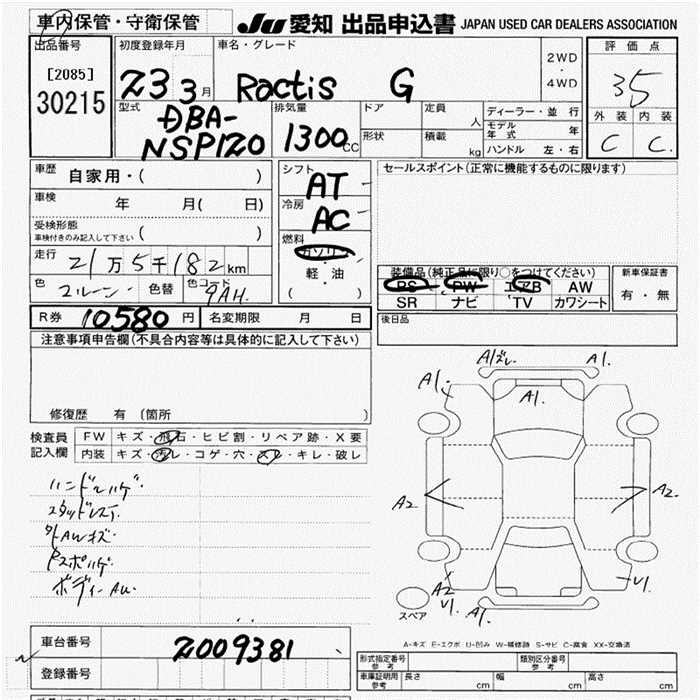 車内保管・守衛保管
JU 愛知 出品申込書 JAPAN USED CAR DEALERS ASSOCIATION
出品番号
[2085]
30215
初度登録年月
23 3月
車名・グレード
Ractis G
2WD
・
4WD
評価点
35
外装 内装
C C
型式
DBA-
NSP120
排気量
1300 CC
ドア
形状
定員 人
積載 kg
ディーラー・並行
モデル年式 年
ハンドル 左・右
車歴
自家用・( )
車検 年 月( 日)
受検形態
車検付きのみ記入して下さい ( )
走行
21万5千182km
色 色替 色コード
R券 10580 円 名変期限 月 日
シフト
AT
冷房
AC
燃料
ガソリン
軽・油
( )
セールスポイント(正常に機能するものに限ります)
装備品(純正品に限り○をつけてください)
PS PW エアB AW
SR ナビ TV カワシート
新車保証書
有・無
後日品
注意事項申告欄(不具合内容等は具体的に記入して下さい)
修復歴 有 (箇所 )
検査員
記入欄
FW キズ・飛石・ヒビ割・リペア跡・X要
内装 キズ・汚レ・コゲ・穴・スレ・キレ・破レ
ハンドルハゲ
スタッドレス
外AWキズ
ボディーAU
A1ズレ A1.
A1. A1.
A2 A2.
A2
U1. A1. U1
スペア
A-キズ E-エクボ U-凹み W-補修跡 S-サビ C-腐食 XX-交換済
車台番号
2009381
登録番号
形式指定番号
参考
類別区分番号
参考
車庫証明用
参考
長さ cm 幅 cm 高さ cm